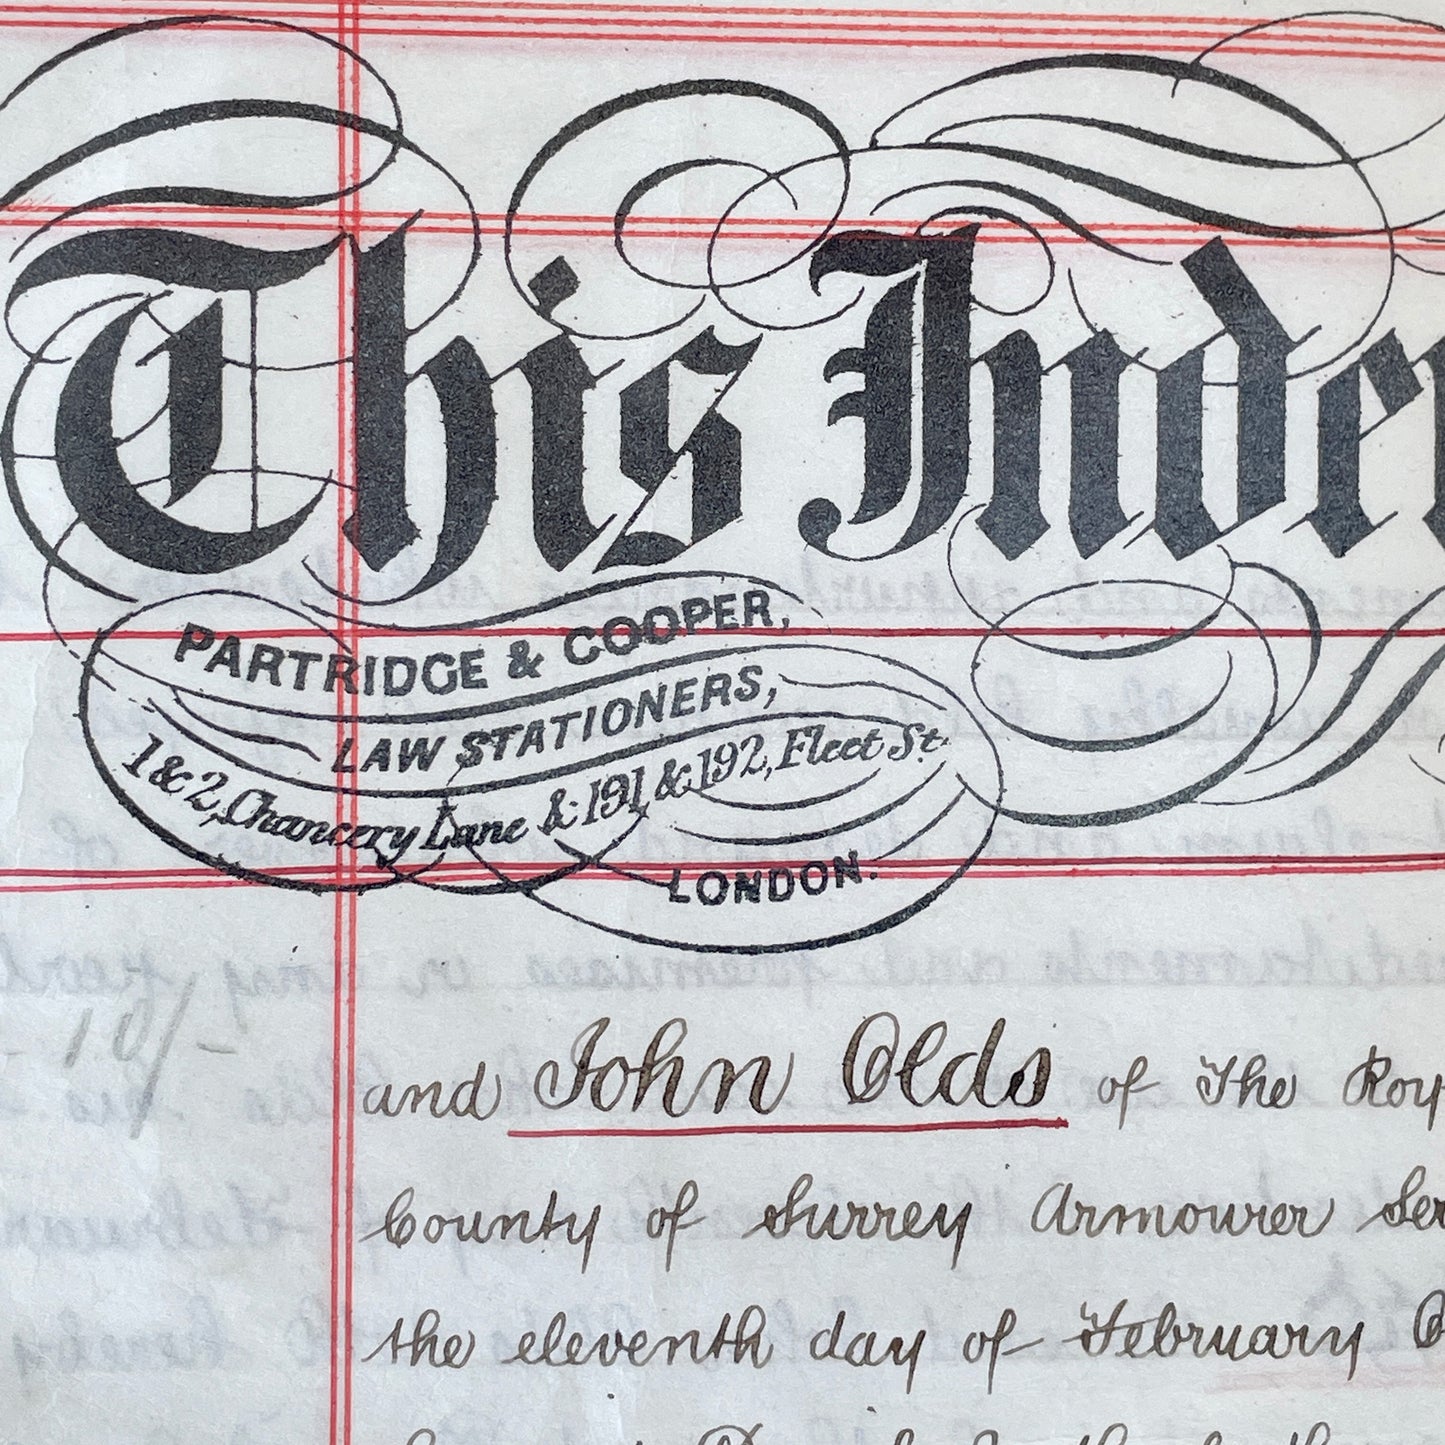 This Inden
PARTRIDGE & COOPER,
LAW STATIONERS,
1 & 2, Chancery Lane & 191 & 192, Fleet St.
LONDON.
10/-
and John Olds of The Roy
County of Surrey Armourer Ser
the eleventh day of February O